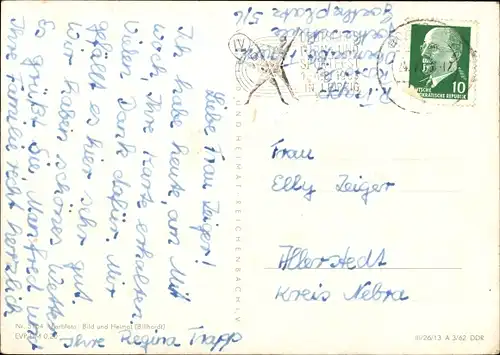 Liebe Frau Zeiger!
Ich habe heute, am Mitt
woch, Ihre Karte erhalten.
Vielen Dank dafür. Mir
gefällt es hier sehr gut.
Wir haben schönes Wetter.
Es grüßt Sie, Manfred und
Ihre Familie recht herzlich
Ihre Regina Trapp
R. Trapp
Goetheplatz 5/6
IV.
IN LEIPZIG
10
DEUTSCHE
DEMOKRATISCHE REPUBLIK
Frau
Elly Zeiger
Allerstedt
Kreis Nebra
BILD UND HEIMAT REICHENBACH I. V.
Bild und Heimat (Billhardt)
III/26/13 A 3/62 DDR